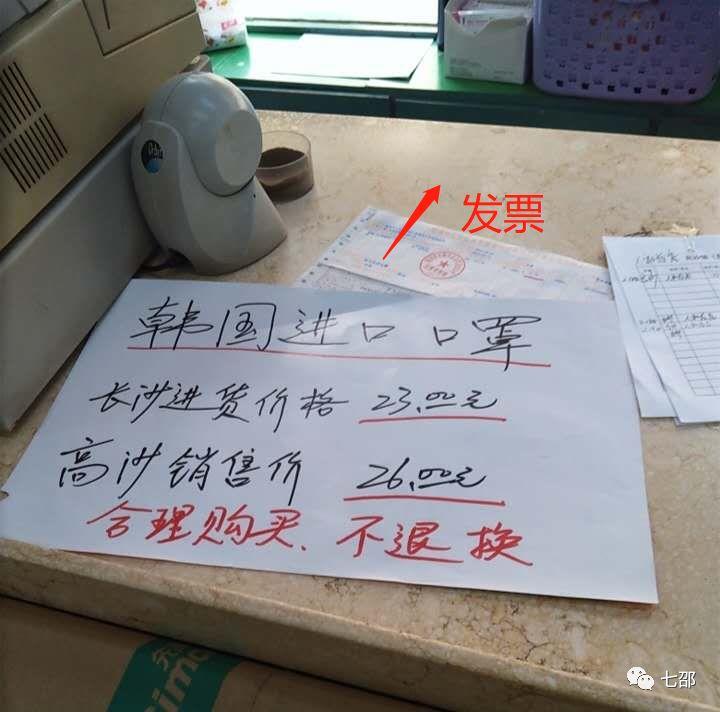 发票
韩国进口 口罩
长沙进货价格 23.00元
高沙销售价 26.00元
合理购买、不退换
七邵